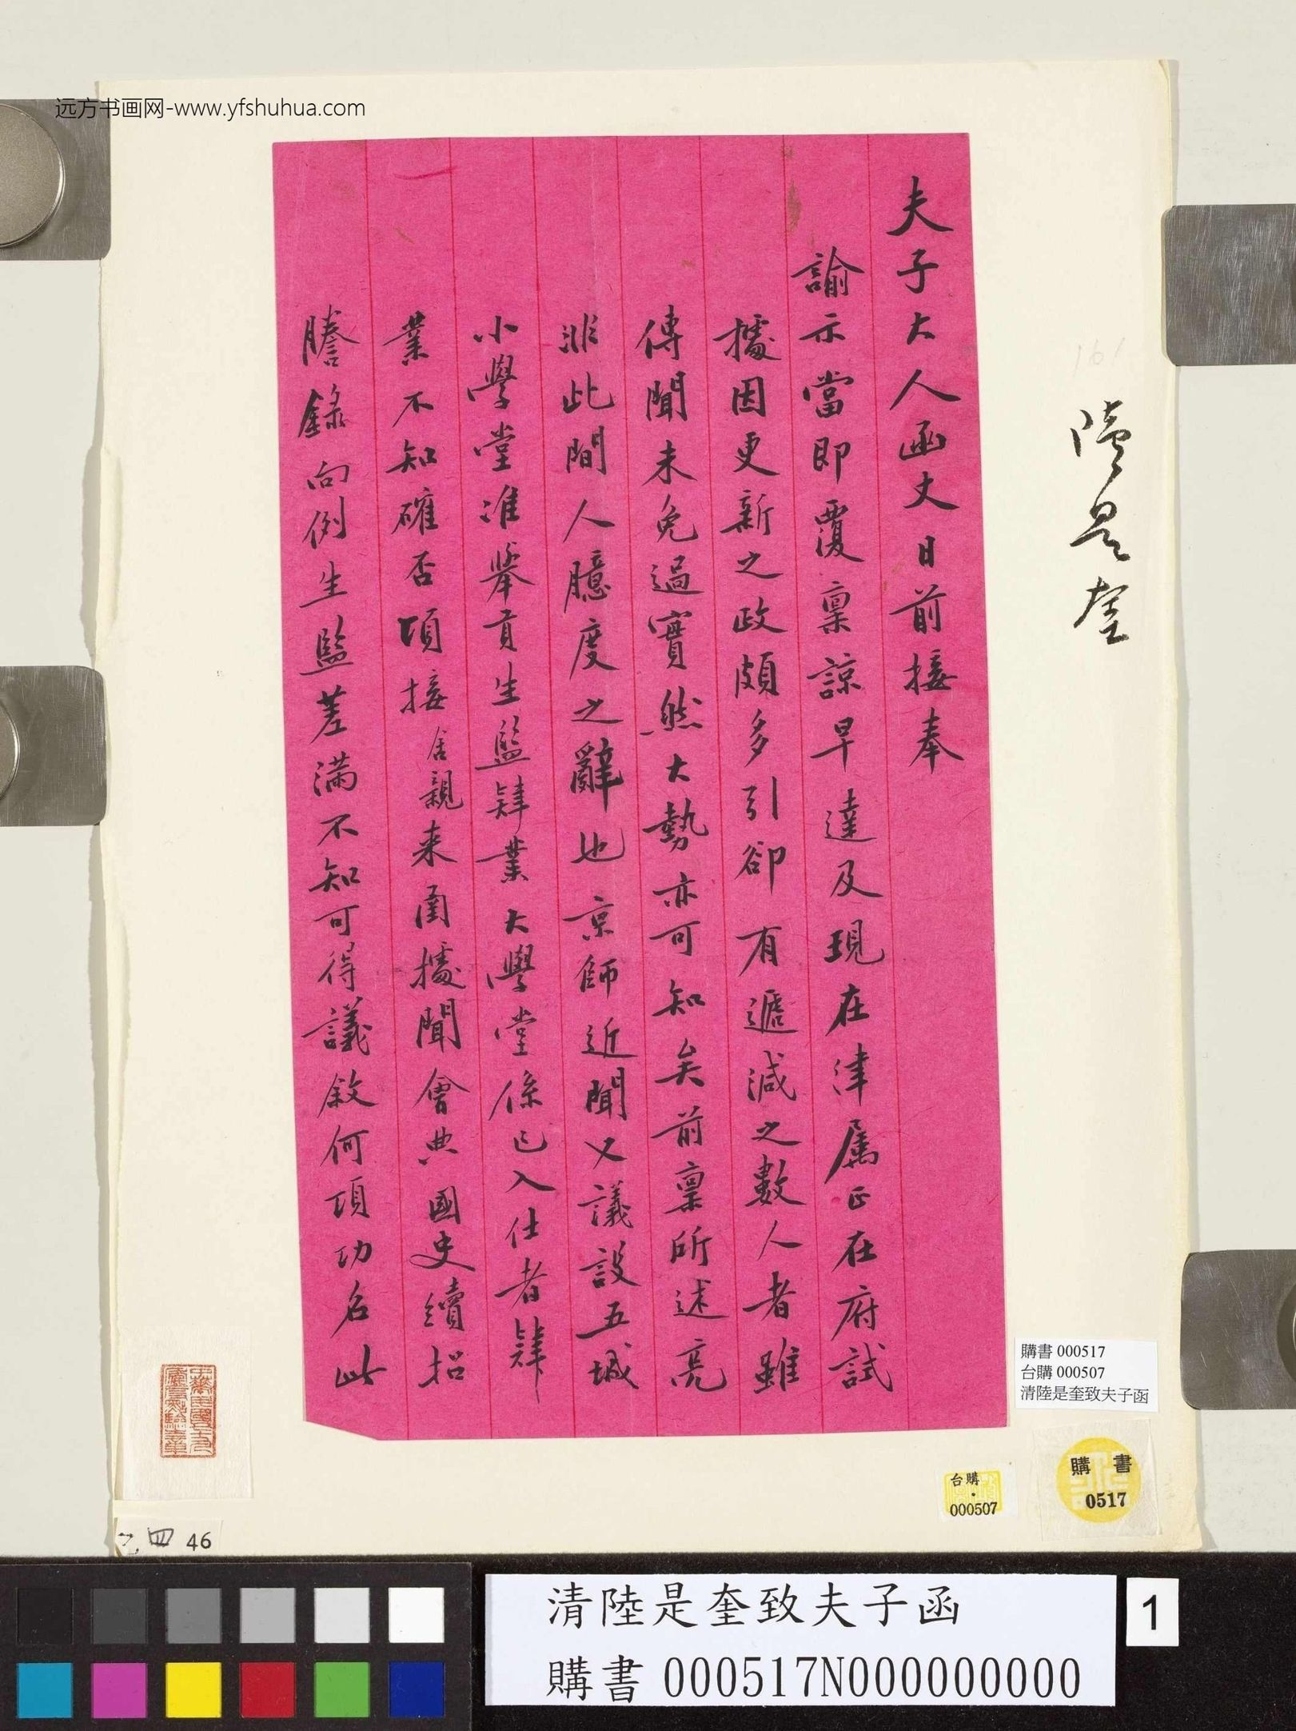 远方书画网-www.yfshuhua.com
夫子大人函丈日前接奉
諭示當即覆稟諒早達及現在津屬正在府試
據因更新之政頗多引卻有遞減之數人者雖
傳聞未免過實然大勢亦可知矣前稟所述亮
非此間人臆度之辭也京師近聞又議設五城
小學堂准舉貢生監肄業大學堂係已入仕者肄
業不知確否頃接舍親来函據聞會典國史續招
謄錄向例生監差滿不知可得議敘何項功名此
陸是奎
161
購書 000517
台購 000507
清陸是奎致夫子函
台購
000507
購書
0517
四 46
清陸是奎致夫子函
購書 000517N000000000
1